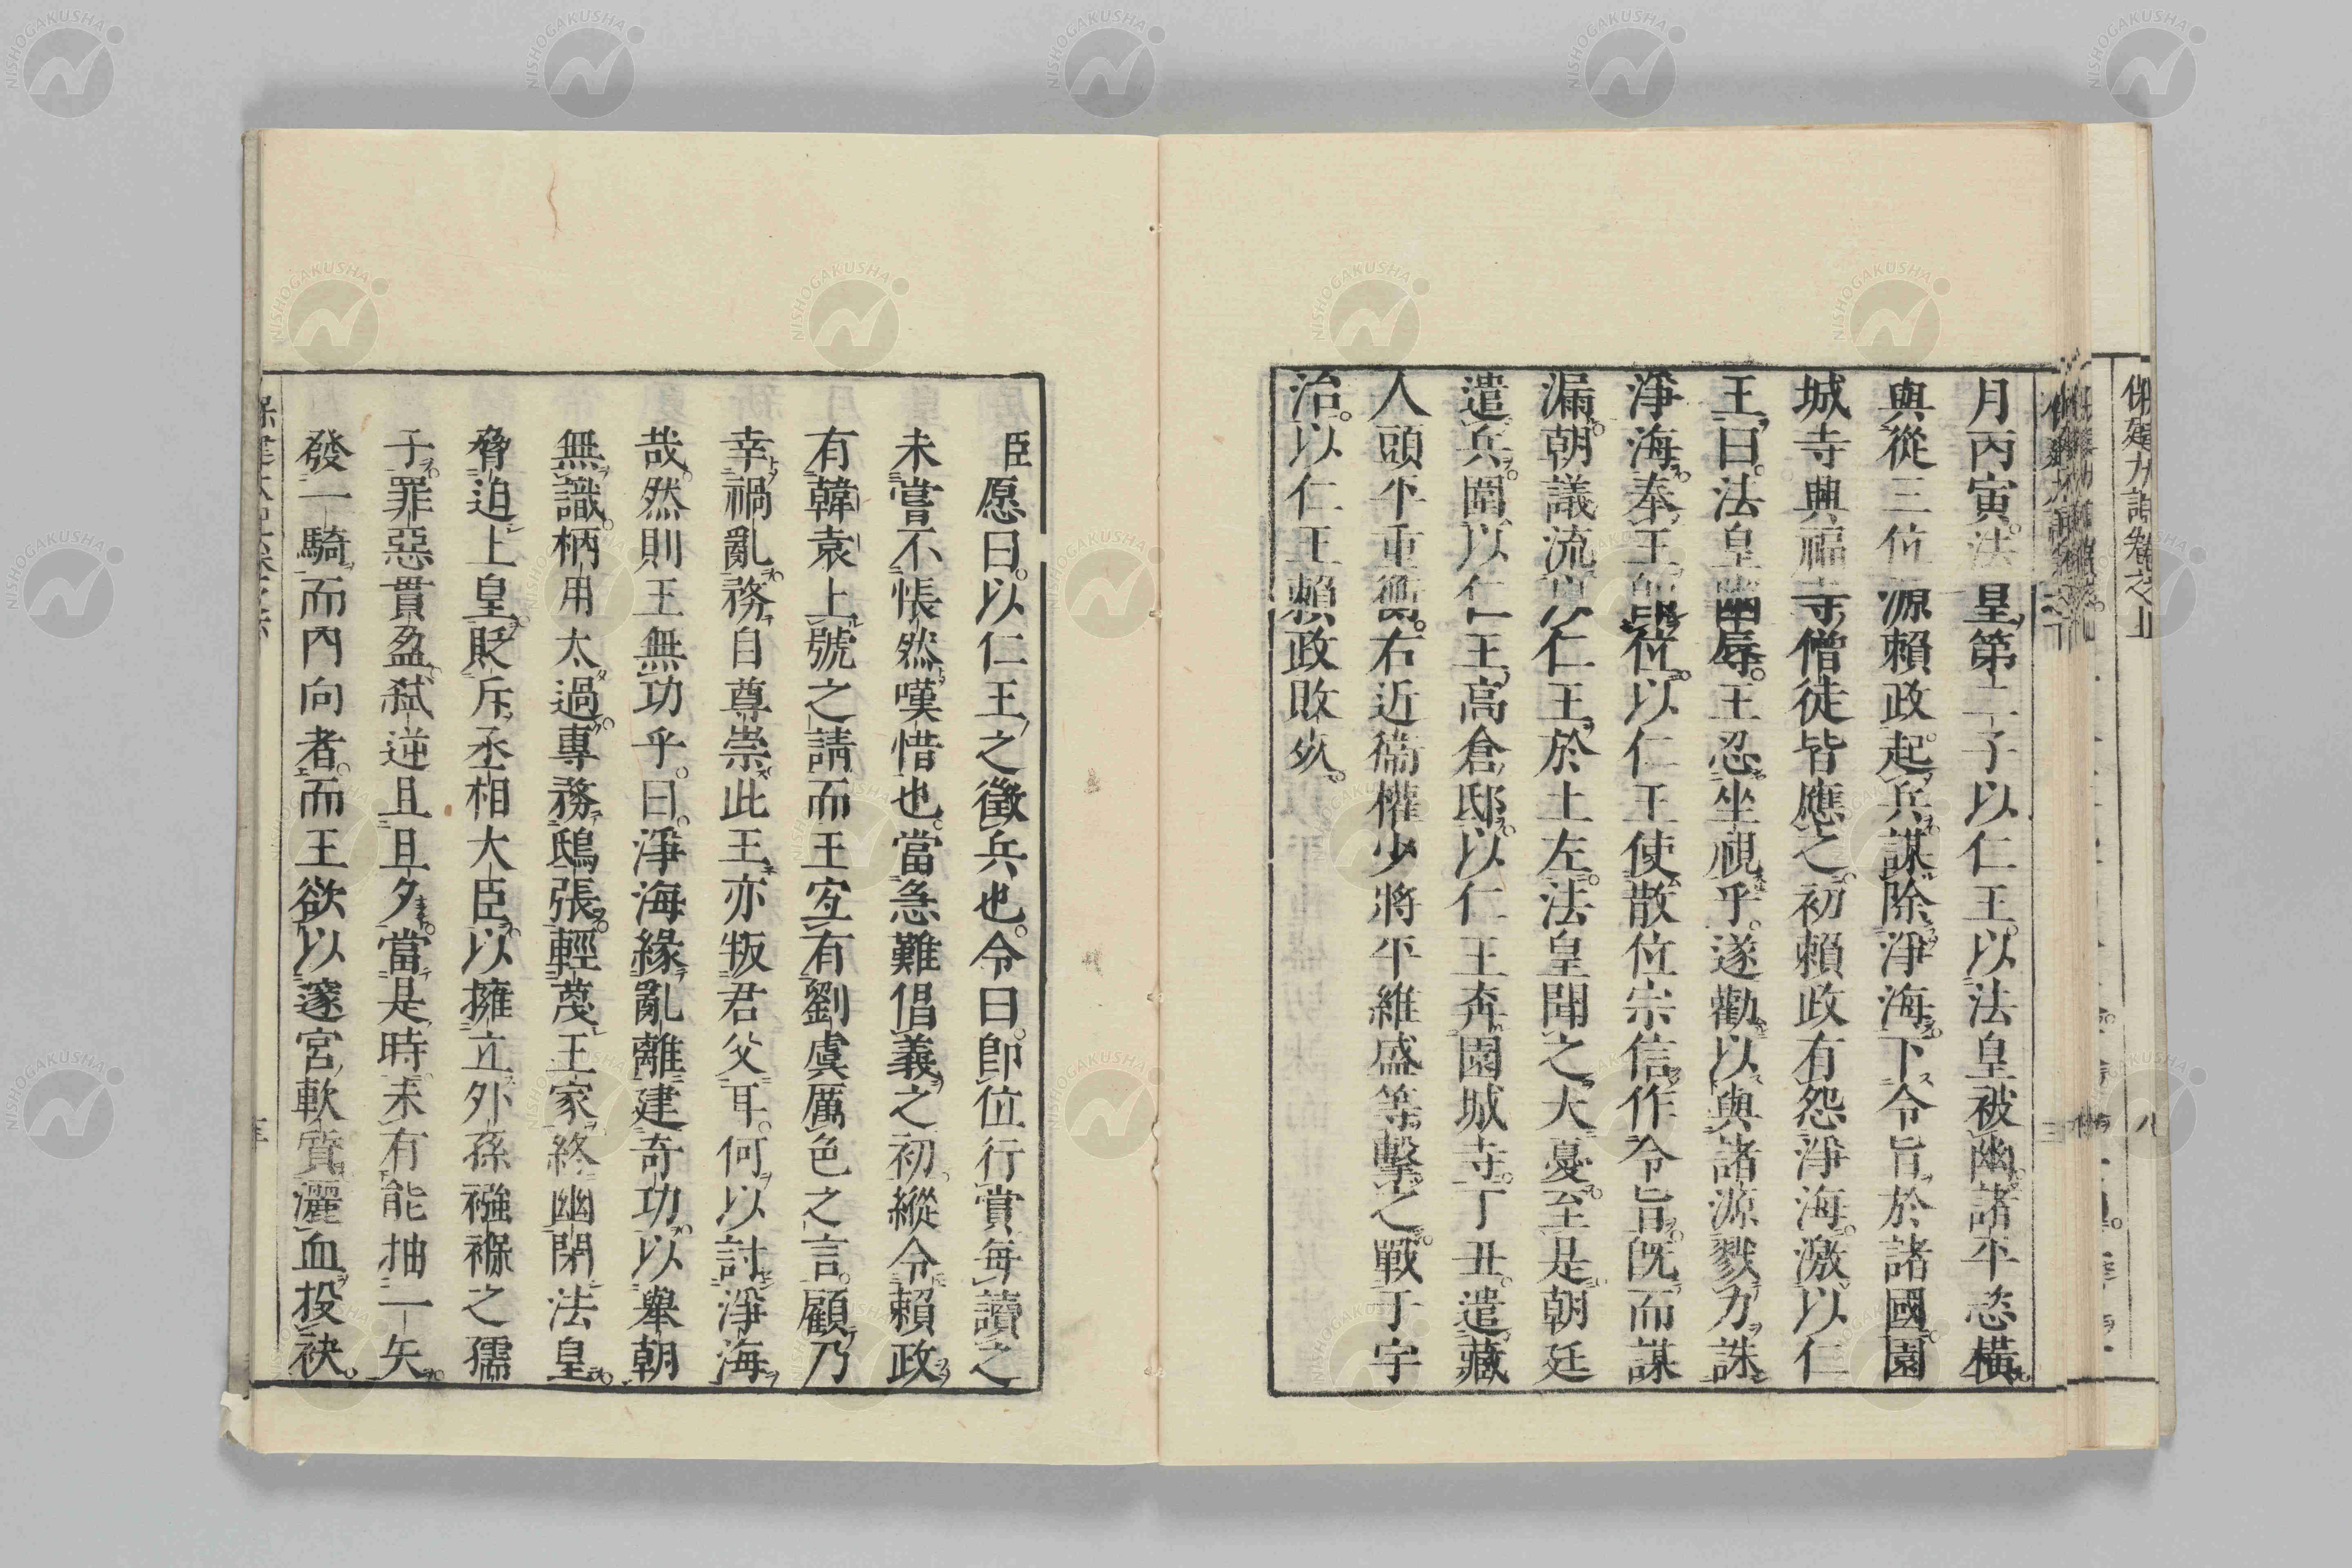 月丙寅。法皇第二子以仁王。以法皇被幽。諸平恣橫。
與從三位源賴政。起兵。謀除淨海。下令旨於諸國。園
城寺興福寺僧徒皆應之。初賴政有怨淨海。激以仁
王曰。法皇幽辱。王忍坐視乎。遂勸以與諸源戮力誅
淨海。奉王即位。以仁王使散位宗信作令旨。既而謀
漏。朝議流以仁王於土左。法皇聞之大憂。至是朝廷
遣兵。圍以仁王高倉邸。以仁王奔園城寺。丁丑。遣藏
人頭平重衡。右近衞權少將平維盛等擊之。戰于宇
治。以仁王賴政敗死。
臣愿曰。以仁王之徵兵也。令曰。即位行賞。每讀之
未嘗不悵然嘆惜也。當急難倡義之初。縱令賴政
有韓袁上號之請。而王宜有劉虞厲色之言。顧乃
幸禍亂。務自尊崇。此王亦叛君父耳。何以討淨海
哉。然則王無功乎。曰。淨海緣亂離建奇功。以舉朝
無識。柄用太過。專務鴟張。輕蔑王家。終幽閉法皇。
脅迫上皇。貶斥丞相大臣。以擁立外孫襁褓之孺
子。罪惡貫盈。弒逆且旦夕。當是時。未有能抽一矢。
發一騎而內向者。而王欲以邃宮軟質灑血投袂。